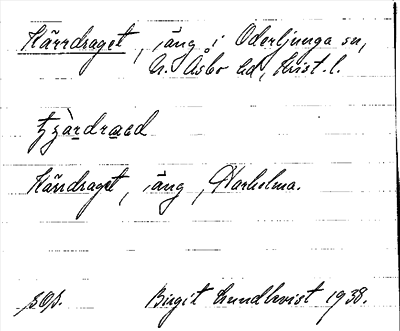 Kärrdraget, äng i Oderljunga sn,
N. Åsbo hd, Krist. l.
Kärrdraget, äng, Harholma.
Birgit Lundkvist 1938.